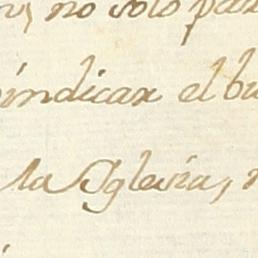 no solo par
vindicar el bu
la Yglesia,